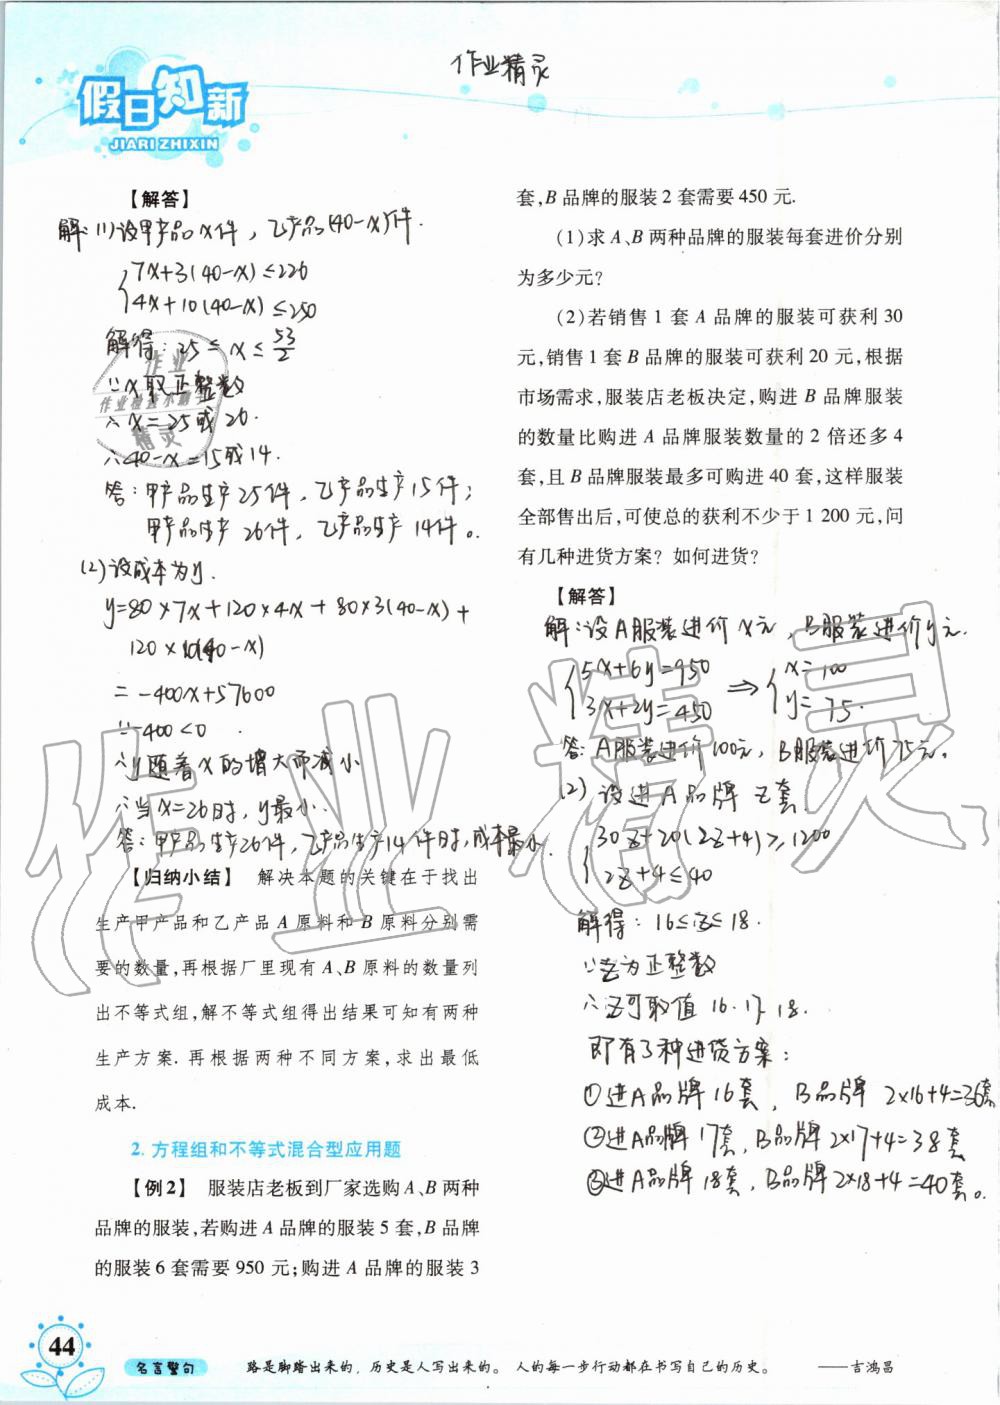 作业精灵
假日知新
JIARI ZHIXIN
【解答】
解:(1)设甲产品x件，乙产品(40-x)件.
7x+3(40-x)≤226
4x+10(40-x)≤250
解得:25≤x≤53/2
∵x取正整数
∴x=25或26.
∴40-x=15或14.
答:甲产品生产25件，乙产品生产15件;
甲产品生产26件，乙产品生产14件。
(2)设成本为y.
y=80×7x+120×4x+80×3(40-x)+
120×10(40-x)
=-400x+57600
∵-400<0
∴y随着x的增大而减小
∴当x=26时，y最小.
答:甲产品生产26件，乙产品生产14件时，成本最小.
【归纳小结】 解决本题的关键在于找出
生产甲产品和乙产品A原料和B原料分别需
要的数量,再根据厂里现有A、B原料的数量列
出不等式组,解不等式组得出结果可知有两种
生产方案.再根据两种不同方案,求出最低
成本.
2. 方程组和不等式混合型应用题
【例2】 服装店老板到厂家选购A、B两种
品牌的服装,若购进A品牌的服装5套,B品牌
的服装6套需要950元;购进A品牌的服装3
套,B品牌的服装2套需要450元.
(1)求A、B两种品牌的服装每套进价分别
为多少元?
(2)若销售1套A品牌的服装可获利30
元,销售1套B品牌的服装可获利20元,根据
市场需求,服装店老板决定,购进B品牌服装
的数量比购进A品牌服装数量的2倍还多4
套,且B品牌服装最多可购进40套,这样服装
全部售出后,可使总的获利不少于1 200元,问
有几种进货方案? 如何进货?
【解答】
解:设A服装进价x元，B服装进价y元.
5x+6y=950 ⇒ x=100
3x+2y=450 y=75.
答:A服装进价100元，B服装进价75元。
(2)设进A品牌z套.
30z+20(2z+4)≥1200
2z+4≤40
解得:16≤z≤18.
∵z为正整数
∴z可取值16.17.18.
即有3种进货方案:
①进A品牌16套，B品牌2×16+4=36套
②进A品牌17套，B品牌2×17+4=38套
③进A品牌18套，B品牌2×18+4=40套。
作业
作业检查小帮手
精灵
作业精灵
44
名言警句
路是脚踏出来的,历史是人写出来的。人的每一步行动都在书写自己的历史。 ——吉鸿昌